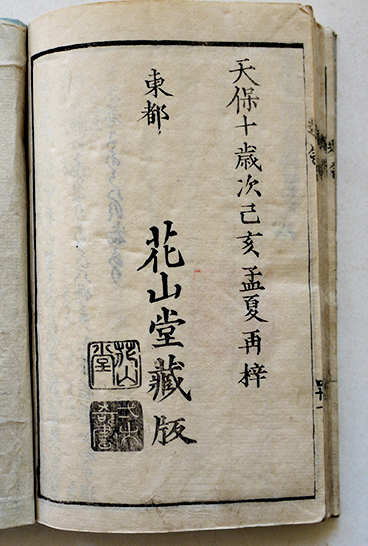 天保十歳次己亥孟夏再梓
東都
花山堂藏版
花山堂